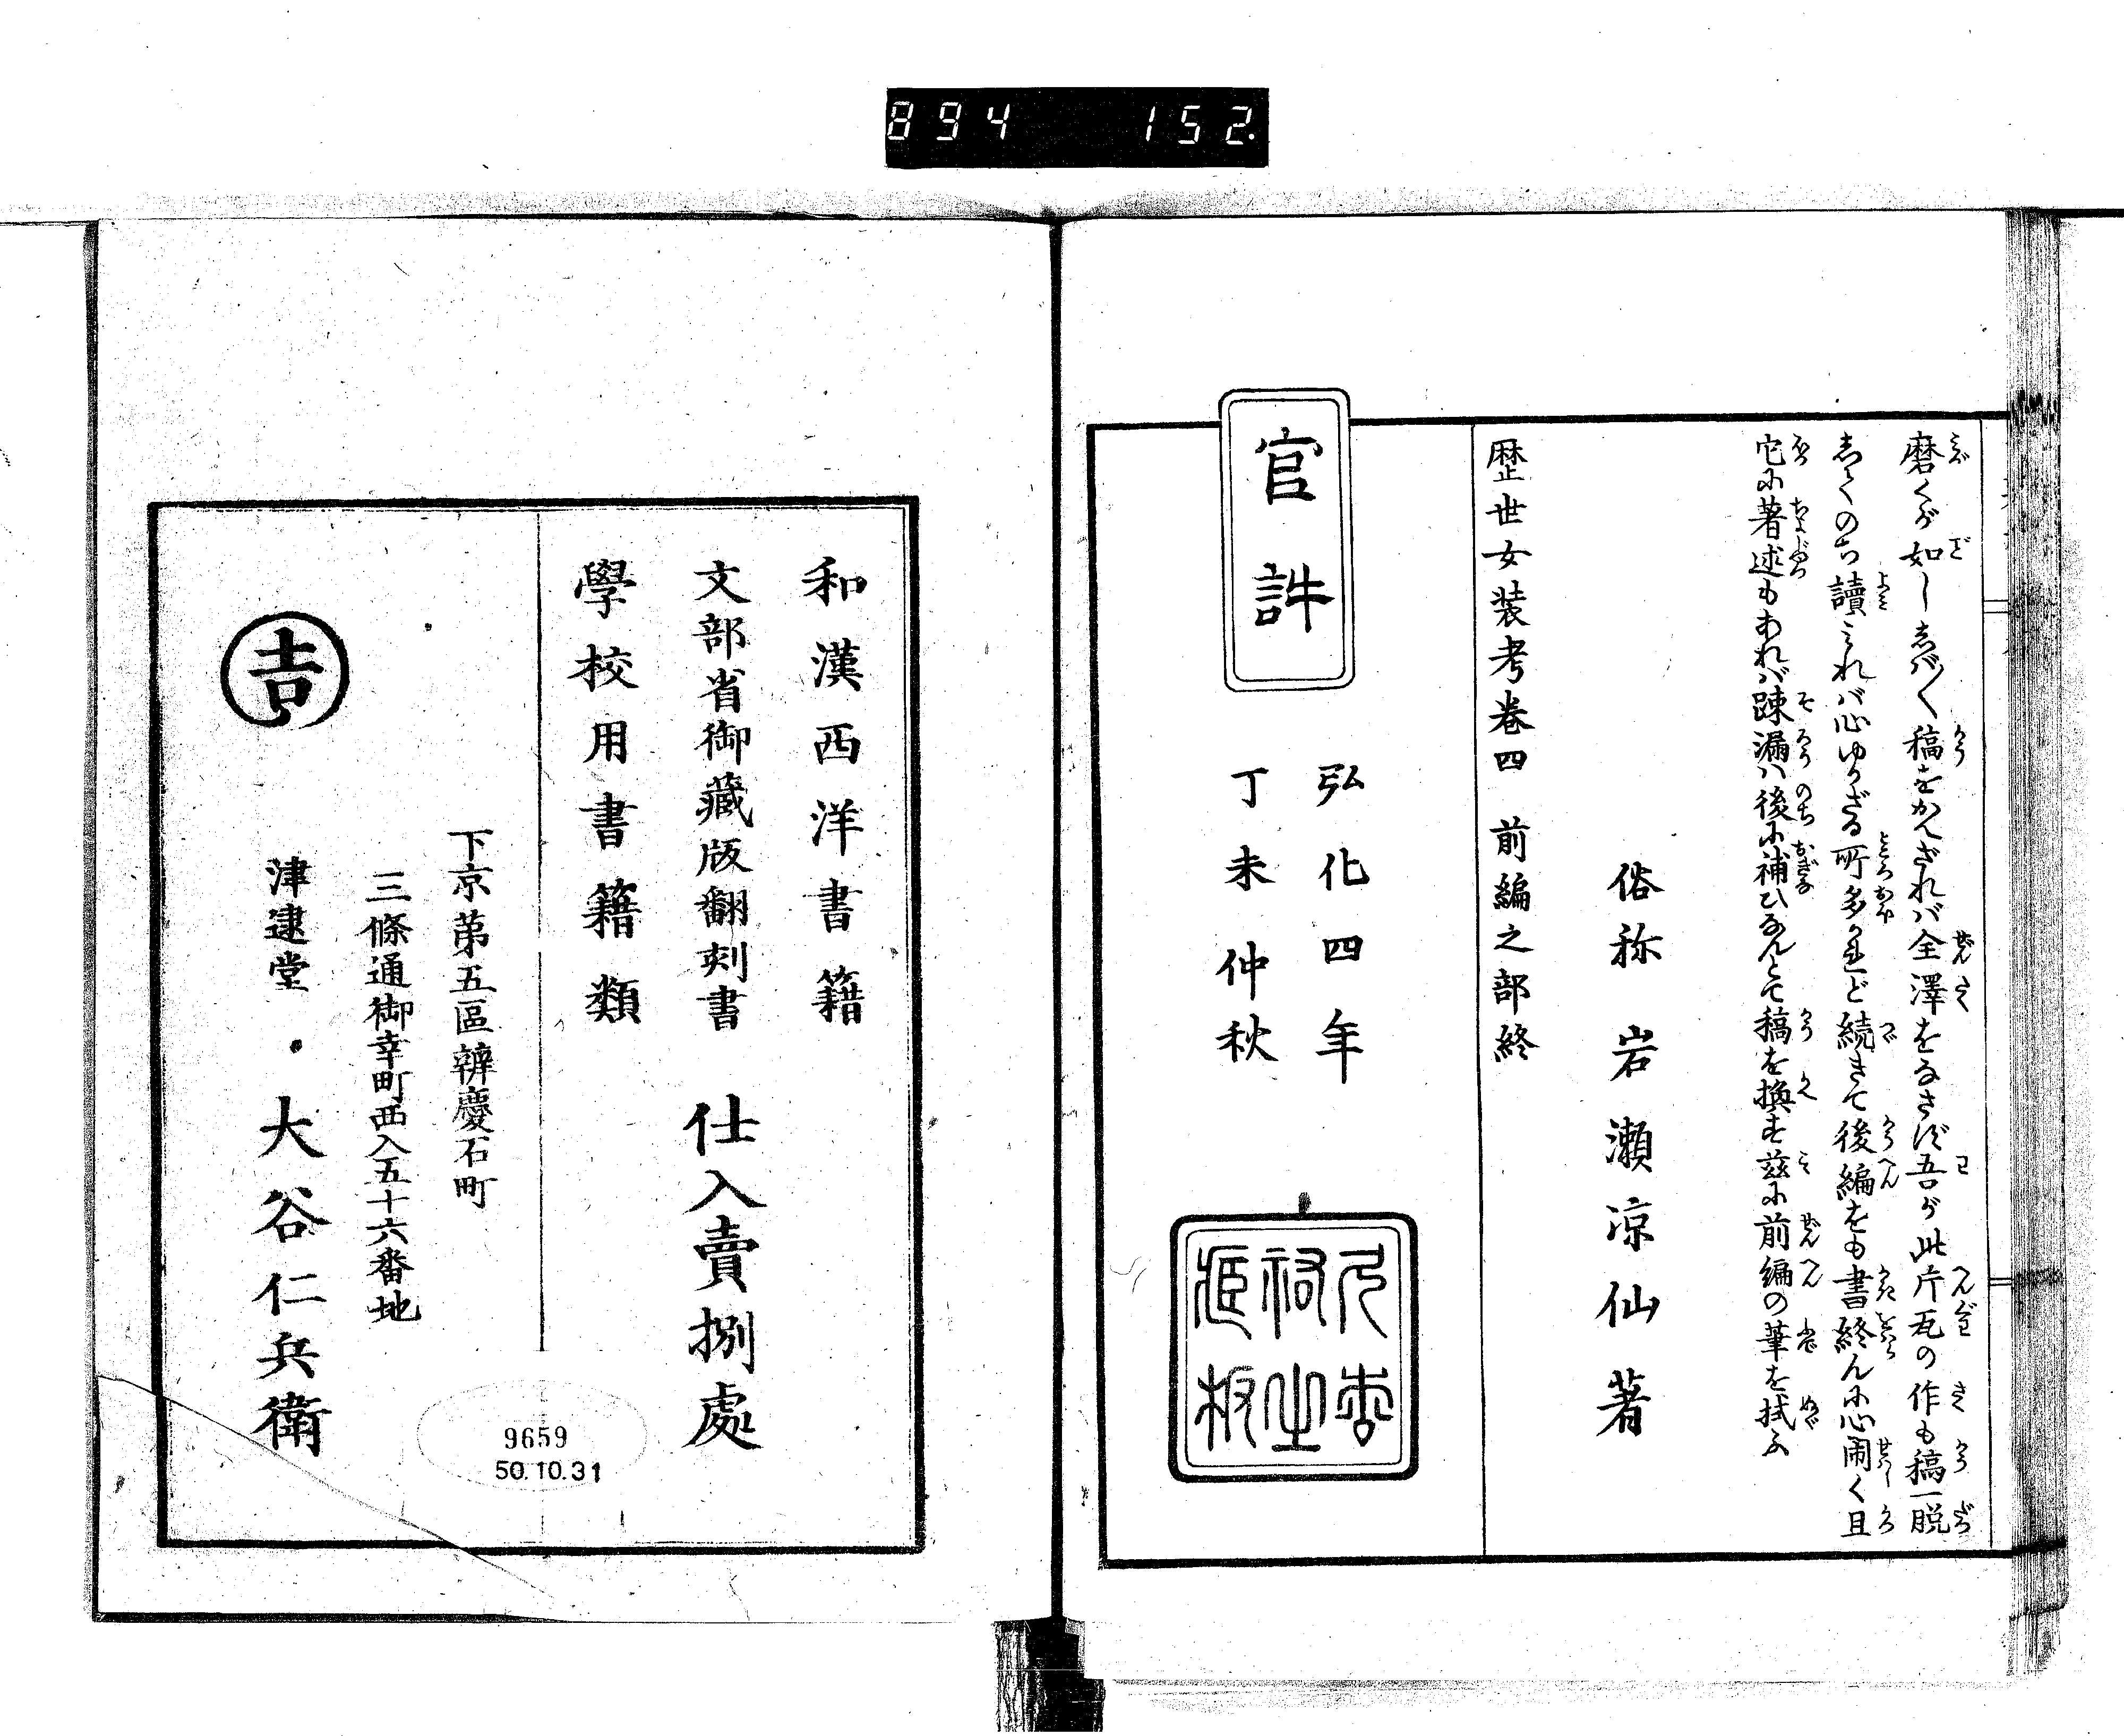 894 152.
磨くが如ししば〱稿をかへざれば全澤をなさず吾が此片瓦の作も稿一脱
しての ち讀みれば心ゆかざる所多かれど続きて後編をも書終んに心閙く且
它に著述もあれば踈漏は後に補ひなんとて稿を換ず茲に前編の筆を拭ふ
俗称 岩瀬凉仙著
歴世女装考巻四 前編之部終
官許
弘化四年
丁未仲秋
和漢西洋書籍
文部省御藏版翻刻書
學校用書籍類
仕入賣捌處
下京第五區辨慶石町
三條通御幸町西入五十六番地
吉
津逮堂・大谷仁兵衛
9659
50.10.31